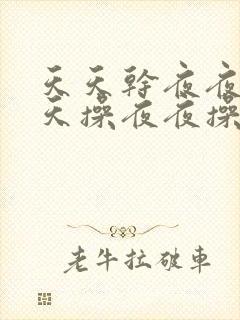 天天幹夜夜
天操夜夜操
老牛拉破車